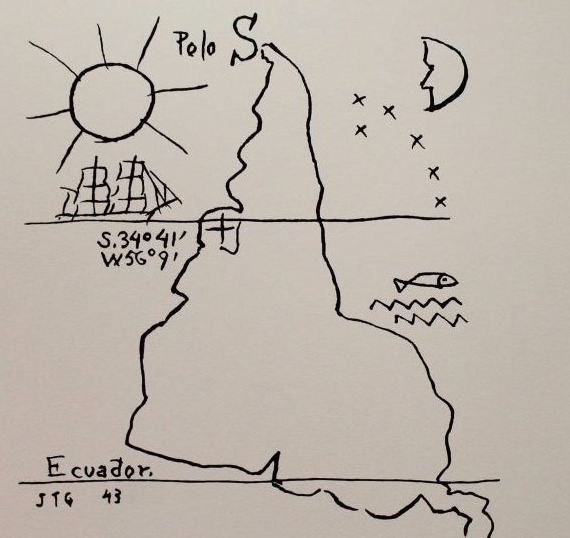 Polo S
S.34°41'
W56°9'
Ecuador.
JTG 43